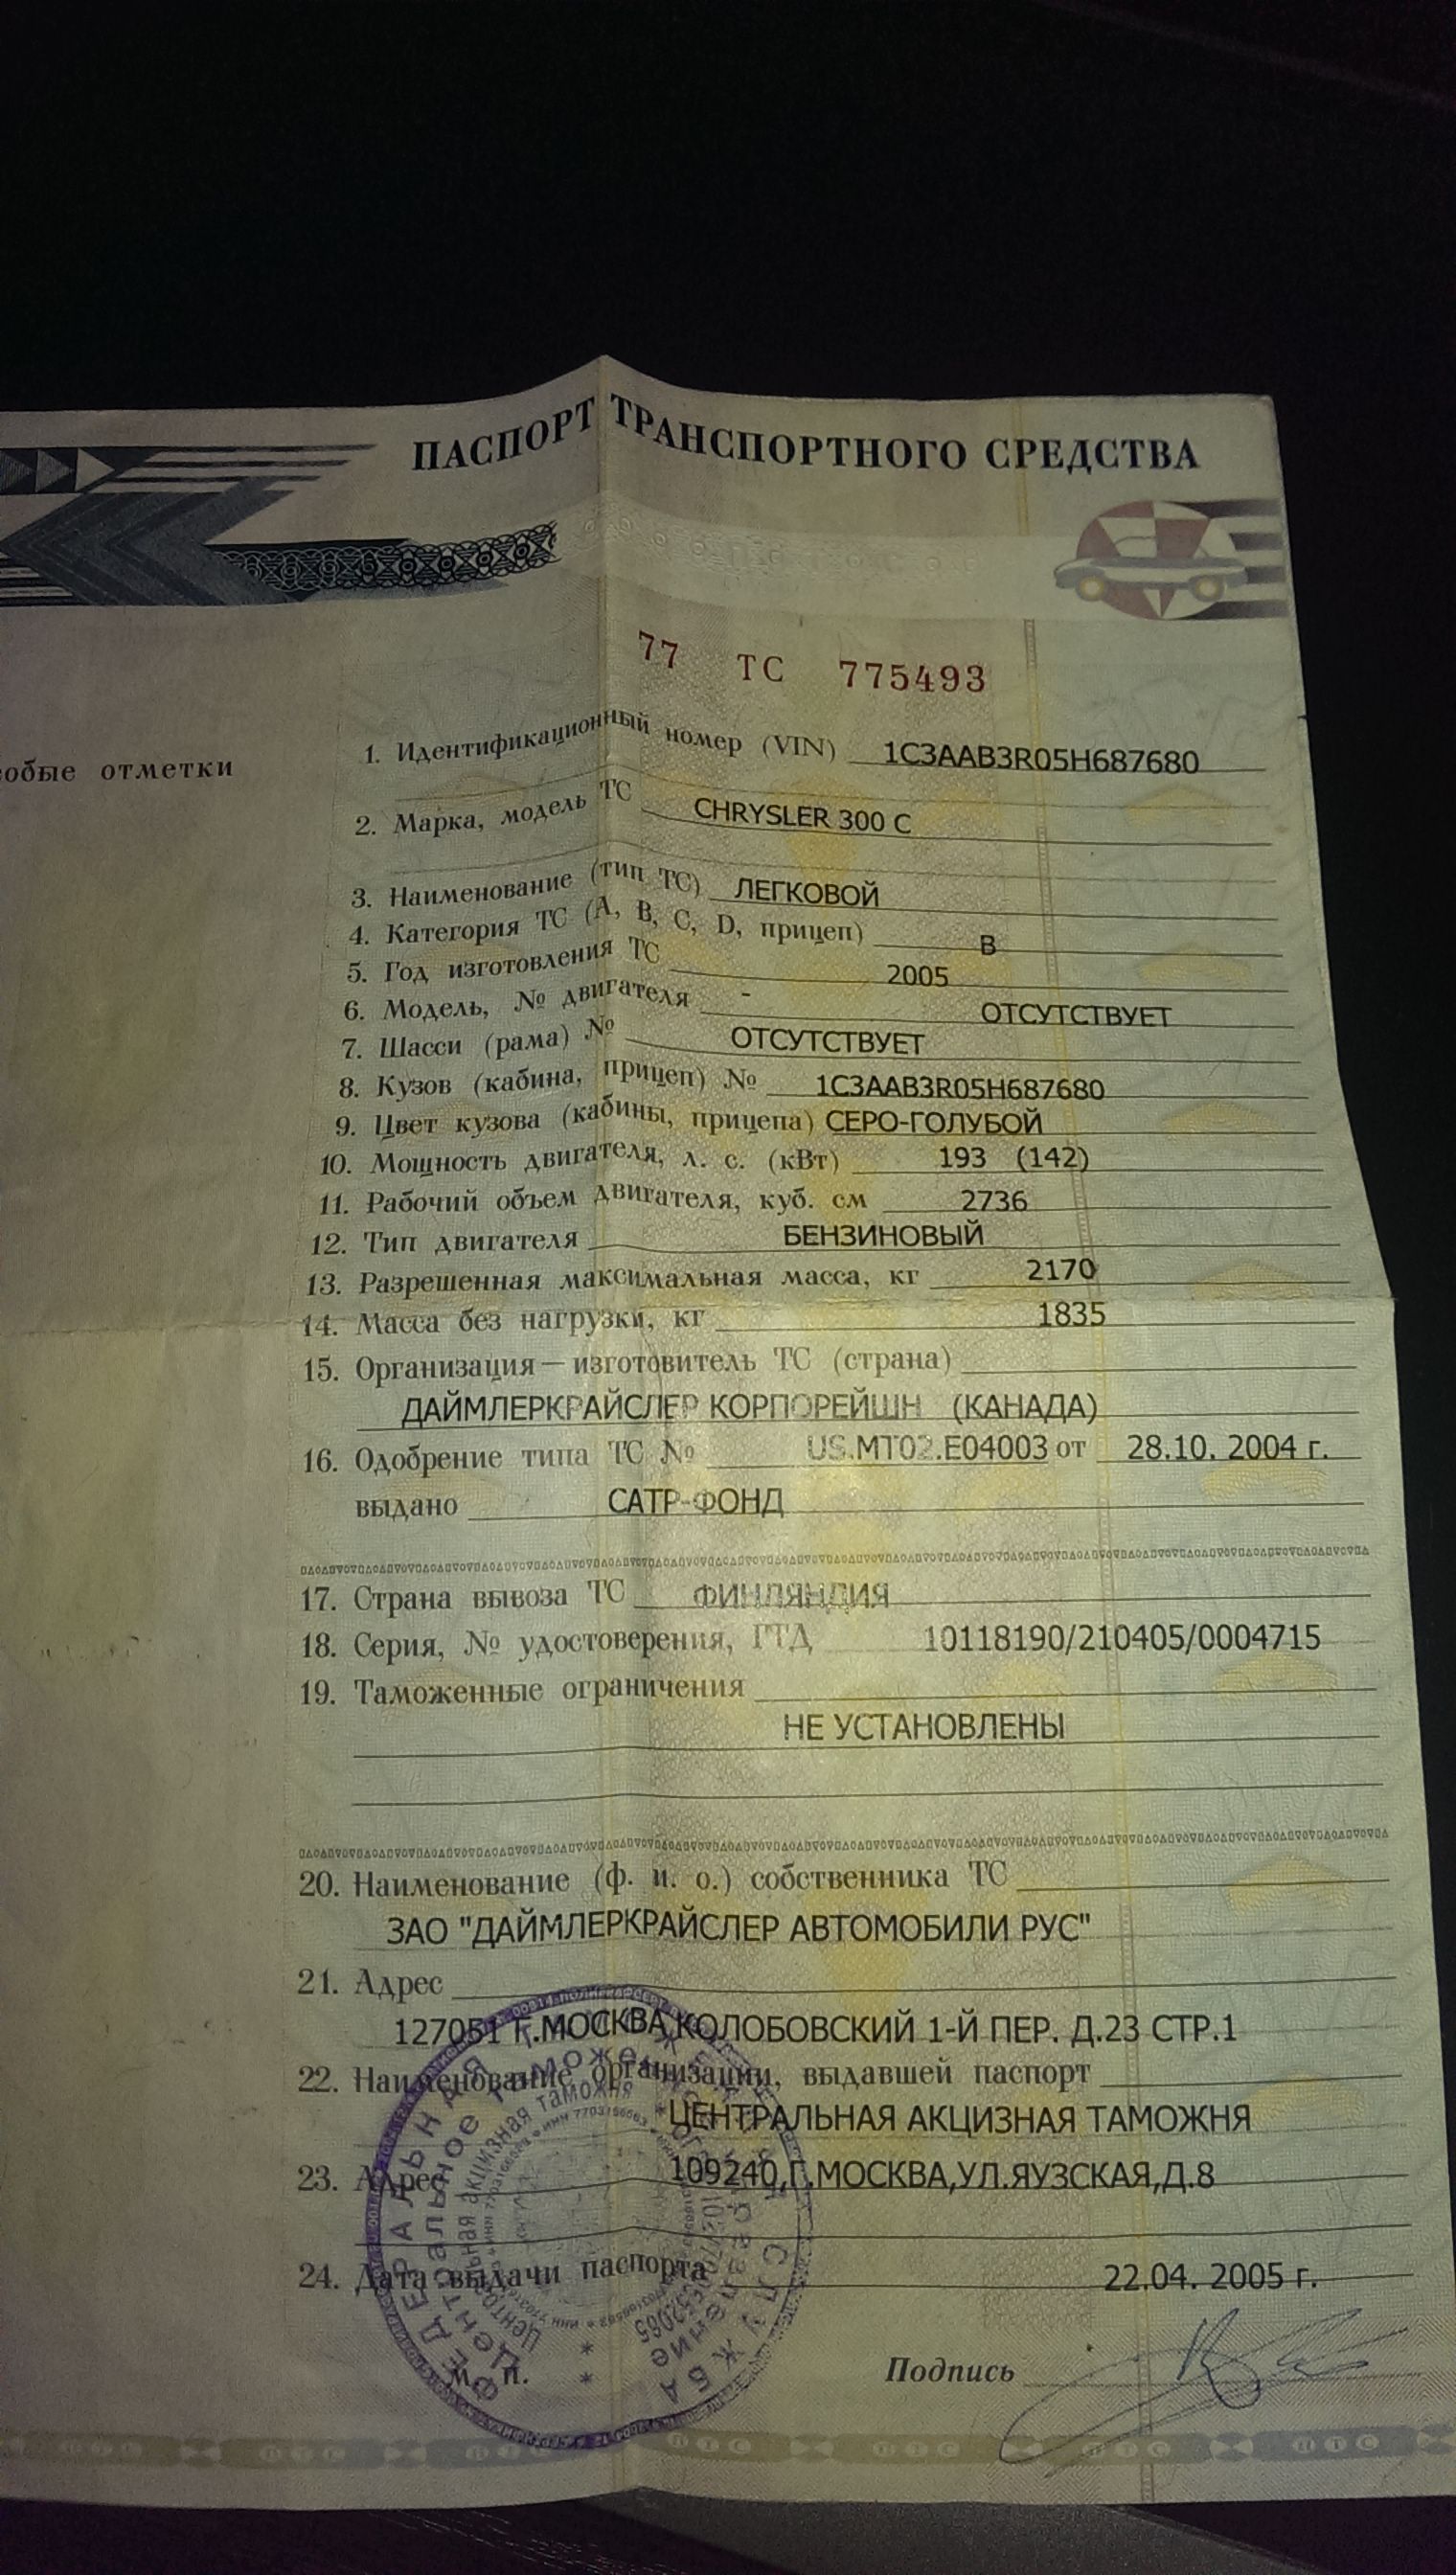 ПАСПОРТ ТРАНСПОРТНОГО СРЕДСТВА
77 ТС 775493
собые отметки
1. Идентификационный номер (VIN) 1C3AAB3R05H687680
2. Марка, модель ТС CHRYSLER 300 C
3. Наименование (тип ТС) ЛЕГКОВОЙ
4. Категория ТС (А, В, С, D, прицеп) В
5. Год изготовления ТС 2005
6. Модель, № двигателя - ОТСУТСТВУЕТ
7. Шасси (рама) № ОТСУТСТВУЕТ
8. Кузов (кабина, прицеп) № 1C3AAB3R05H687680
9. Цвет кузова (кабины, прицепа) СЕРО-ГОЛУБОЙ
10. Мощность двигателя, л. с. (кВт) 193 (142)
11. Рабочий объем двигателя, куб. см 2736
12. Тип двигателя БЕНЗИНОВЫЙ
13. Разрешенная максимальная масса, кг 2170
14. Масса без нагрузки, кг 1835
15. Организация—изготовитель ТС (страна)
ДАЙМЛЕРКРАЙСЛЕР КОРПОРЕЙШН (КАНАДА)
16. Одобрение типа ТС № US.MT02.E04003 от 28.10. 2004 г.
выдано САТР-ФОНД
17. Страна вывоза ТС ФИНЛЯНДИЯ
18. Серия, № удостоверения, ГТД 10118190/210405/0004715
19. Таможенные ограничения
НЕ УСТАНОВЛЕНЫ
20. Наименование (ф. и. о.) собственника ТС
ЗАО "ДАЙМЛЕРКРАЙСЛЕР АВТОМОБИЛИ РУС"
21. Адрес
127051 Г.МОСКВА,КОЛОБОВСКИЙ 1-Й ПЕР. Д.23 СТР.1
22. Наименование организации, выдавшей паспорт
ЦЕНТРАЛЬНАЯ АКЦИЗНАЯ ТАМОЖНЯ
23. Адрес 109240,Г.МОСКВА,УЛ.ЯУЗСКАЯ,Д.8
24. Дата выдачи паспорта 22.04. 2005 г.
м. п.
Подпись